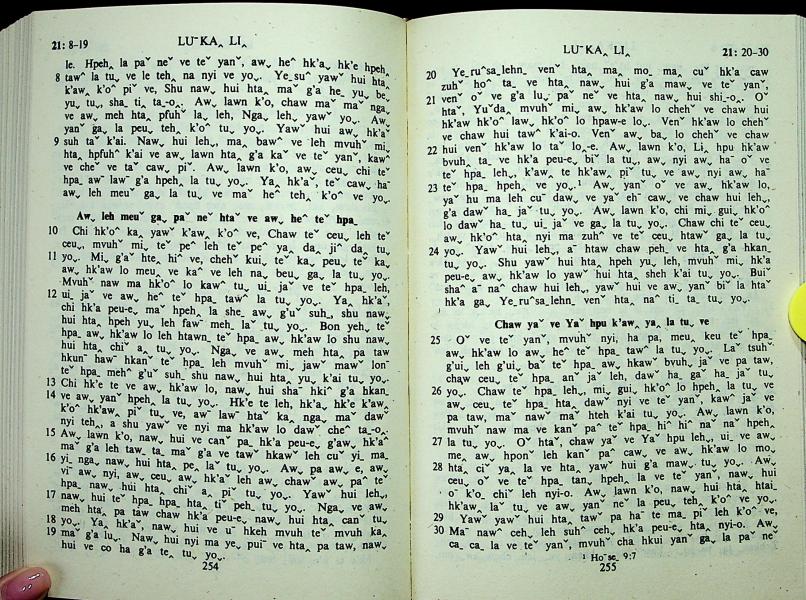 21: 8-19
LUˉ KA‸ LI‸
le. Hpeh‸ la paˇ neˇ ve teˇ yanˇ, aw˯ heˆ hk'a˯ hk'e hpeh‸
8 tawˆ la tu˯ ve le teh˯ na nyi ve yo˯. Ye‸suˆ yawˇ hui hta˯
k'aw˯ k'oˆ piˇ ve, Shu naw˯ hui hta˯ maˇ g'a he˯ yu˯ be˯
yu˯ tu˯ sha‸ ti‸ ta‸-o‸. Aw˯ lawn k'o, chaw maˇ maˇ nga˯
ve aw˯ meh hta˯ pfuhˇ la˯ leh, Nga˯ leh˯ yaw˯ yo˯. Aw˯
yanˇ ga˯ la peu˯ teh˯ k'oˆ tu˯ yo˯. Yawˇ hui aw˯ hk'aˇ
9 suh taˇ k'ai. Naw˯ hui leh˯, ma˯ bawˆ ve leh mvuhˇ mi˯
hta˯ hpfuhˆ k'ai ve aw˯ lawn hta˯ g'a kaˇ ve teˇ yanˇ, kawˆ
ve cheˇ ve taˇ caw˯ piˇ. Aw˯ lawn k'o, aw˯ ceu˯ chi teˇ
hpa‸ awˉ lawˉ g'a hpeh˯ la tu˯ yo˯. Ya‸ hk'aˇ, teˇ caw˯ haˉ
aw˯ leh meuˇ ga˯ la tu˯ ve maˇ heˆ teh˯ k'oˆ ve yo˯.
Aw˯ leh meuˇ ga˯ paˇ neˇ htaˇ ve aw˯ heˆ teˇ hpa‸
10 Chi hk'oˆ ka˯ yawˇ k'aw˯ k'oˆ ve, Chaw teˇ ceu˯ leh teˇ
ceu˯, mvuhˇ mi˯ teˇ peˇ leh teˇ peˇ ya‸ da˯ jiˆ da˯ tu˯
11 yo˯. Mi˯ g'aˇ hte˯ hiˆ ve, chehˇ kui˯ teˇ ka˯ peu˯ teˇ ka˯
aw˯ hk'aw lo meu˯ ve kaˆ ve leh na˯ beu˯ ga˯ la tu˯ yo˯.
Mvuhˇ naw ma hk'oˆ lo kawˆ tu˯ ui‸ jaˇ ve teˇ hpa‸ leh,
12 ui‸ jaˇ ve aw˯ heˆ teˇ hpa‸ tawˆ la tu˯ yo˯. Ya‸ hk'aˇ,
chi hk'a peu-e‸ maˇ hpeh˯ la she˯ aw˯ g'uˇ suh‸, shu naw˯
hui hta˯ hpeh yu˯ leh fawˉ meh˯ la˯ tu˯ yo˯. Bon yeh‸ teˇ
hpa‸ aw˯ hk'aw lo leh htawn‸ teˇ hpa‸ aw˯ hk'aw lo shu naw˯
hui hta˯ chiˇ a˯ tu˯ yo˯. Nga˯ ve aw˯ meh hta˯ pa taw
hkunˉ hawˉ hkanˉ teˇ hpa‸ leh mvuhˇ mi˯ jawˇ mawˇ lonˉ
teˇ hpa‸ mehˆ g'uˇ suh‸ shu naw˯ hui hta˯ yuˇ k'ai tu˯ yo˯.
13 Chi hk'e te ve aw˯ hk'aw lo, naw˯ hui shaˉ hkiˆ g'a hkan‸
14 ve aw˯ yanˇ hpeh˯ la tu˯ yo˯. Hk'e te leh, hk'a˯ hk'e k'aw˯
k'oˆ hk'aw˯ piˇ tu˯ ve, awˉ lawˉ htaˇ ka˯ nga˯ maˇ dawˇ
nyi teh˯, a shu yawˇ ve nyi ma hk'aw lo dawˇ cheˆ ta‸-o‸.
15 Aw˯ lawn k'o, naw˯ hui ve canˇ pa‸ hk'a peu-e‸ g'aw˯ hk'aˆ
maˇ g'a leh taw‸ ta‸ maˇ g'a ve tawˇ hkawˇ leh cuˇ yi‸ ma‸
16 yi‸ nga˯ naw˯ hui hta˯ pe‸ la˯ tu˯ yo˯. Aw˯ pa aw˯ e, aw˯
viˉ aw˯ nyi, aw˯ ceu˯ aw˯ hk'aˇ leh aw˯ chawˇ aw˯ paˆ teˇ
hpa‸ naw˯ hui hta˯ chiˇ a˯ piˇ tu˯ yo˯. Yawˇ hui leh˯,
17 naw˯ hui teˇ hpa‸ hpa‸ hta˯ tiˇ peh‸ tu˯ yo˯. Nga˯ ve aw˯
meh hta˯ pa taw chaw hk'a peu-e‸ naw˯ hui hta˯ canˇ tu˯
18 yo˯. Ya‸ hk'aˇ, naw˯ hui ve uˉ hkeh mvuh teˇ mvuh ka˯
19 maˇ g'a lu˯. Naw˯ hui nyi ma ye˯ puiˉ ve hta˯ pa taw, naw˯
hui ve co ha g'a te˯ tu˯ yo˯.
254
LUˉ KA‸ LI‸
21: 20-30
20 Ye‸ruˆsa‸lehn‸ venˇ hta˯ ma˯ mo‸ ma˯ cuˇ hk'a caw
zuhˇ hoˆ ta‸ ve hta˯ naw˯ hui g'a maw˯ ve teˇ yanˇ,
21 venˇ oˇ ve g'a lu˯ paˇ neˇ ve hta˯ naw˯ hui shi‸-o‸. Oˇ
htaˇ, Yuˇda˯ mvuhˇ mi˯ aw˯ hk'aw lo chehˇ ve chaw hui
hk'aw hk'oˆ law˯ hk'oˆ lo hpaw-e lo˯. Venˇ hk'aw lo chehˇ
ve chaw hui tawˆ k'ai-o. Venˇ aw˯ ba˯ lo chehˇ ve chaw
22 hui venˇ hk'aw lo taˇ lo˯-e. Aw˯ lawn k'o, Li‸ hpu hk'aw
bvuh‸ ta‸ ve hk'a peu-e‸ biˇ la tu˯, aw˯ nyi aw˯ haˉ oˇ ve
teˇ hpa‸ leh˯, k'aw˯ te hk'aw˯ piˇ tu˯ ve aw˯ nyi aw˯ haˉ
23 teˇ hpa‸ hpeh˯ ve yo˯.¹ Aw˯ yanˇ oˇ ve aw˯ hk'aw lo,
yaˇ hu ma leh cuˉ daw˯ ve yaˇ ehˉ caw˯ ve chaw hui leh˯,
g'a dawˇ ha‸ jaˇ tu˯ yo˯. Aw˯ lawn k'o, chi mi‸ gui‸ hk'oˆ
lo dawˇ ha‸ tu˯ ui‸ jaˇ ve ga˯ la tu˯ yo˯. Chaw chi teˇ ceu˯
aw˯ hk'oˆ hta˯ nyi ma zuhˆ ve teˇ ceu˯ htawˇ ga˯ la tu˯
24 yo˯. Yawˇ hui leh˯, aˉ htaw chaw peh‸ ve hta˯ g'a hkan‸
tu˯ yo˯. Shu yawˇ hui hta˯ hpeh yu˯ leh, mvuhˇ mi˯ hk'a
peu-e‸ aw˯ hk'aw lo yawˇ hui hta˯ sheh k'ai tu˯ yo˯. Buiˇ
shaˆ aˉ naˆ chaw hui leh˯, yawˇ hui ve aw˯ yanˇ biˇ la htaˇ
hk'a ga˯ Ye‸ruˆsa‸lehn‸ venˇ hta˯ naˆ ti‸ ta‸ tu˯ yo˯.
Chaw yaˇ ve Yaˇ hpu k'aw˯ ya‸ la tu˯ ve
25 Oˇ ve teˇ yanˇ, mvuhˇ nyi, ha pa, meuˬ keu teˇ hpa‸
aw˯ hk'aw lo aw˯ heˆ teˇ hpa‸ tawˆ la tu˯ yo˯. Laˇ tsuhˉ
g'ui˯ leh g'ui˯ baˇ teˇ hpa‸ aw˯ hkawˇ bvuh‸ jaˇ ve pa taw,
chaw˯ ceu˯ teˇ hpa‸ anˉ jaˇ leh, dawˇ ha‸ gaˇ ha‸ jaˇ tu˯
26 yo˯. Chaw teˇ hpa‸ leh˯, mi‸ gui‸ hk'oˆ lo hpeh˯ la tu˯ ve
aw˯ ceu˯ teˇ hpa‸ hta˯ dawˇ nyi ve teˇ yanˇ, kawˆ jaˇ ve
pa taw, maˇ nawˇ maˇ hteh k'ai tu˯ yo˯. Aw˯ lawn k'o,
mvuhˇ naw ma ve kanˇ paˆ teˇ hpa‸ hiˆ hiˆ naˉ naˇ hpeh˯
27 la tu˯ yo˯. Oˇ htaˇ, chaw yaˇ ve Yaˇ hpu leh˯, ui‸ ve aw˯
me˯ aw˯ hponˇ leh kanˇ paˆ caw˯ ve, aw˯ hk'aw lo mo˯
28 hta˯ ciˇ ya‸ la ve hta˯ yawˇ hui g'a maw˯ tu˯ yo˯. Aw˯
ceu˯ oˇ ve teˇ hpa‸ tan˯ hpeh˯ la ve teˇ yanˇ, naw˯ hui
oˉ k'o˯ chiˇ leh nyi-o. Aw˯ lawn k'o, naw˯ hui hta˯ htai‸
hk'aw˯ laˇ tu˯ ve aw˯ yanˇ neˇ la peu˯ teh˯ k'oˆ ve yo˯.
29 Yawˇ yawˇ hui hta˯ tawˇ pa haˉ te ma‸ piˇ leh k'oˆ ve,
30 Maˉ nawˆ ceh˯ leh suhˆ ceh˯ hk'a peu-e‸ hta˯ nyi-o. Aw˯
ca‸ ca‸ la ve teˇ yanˇ, mvuhˇ cha hkui yanˇ ga˯ la paˇ neˇ
¹ Hoˉse‸ 9:7
255